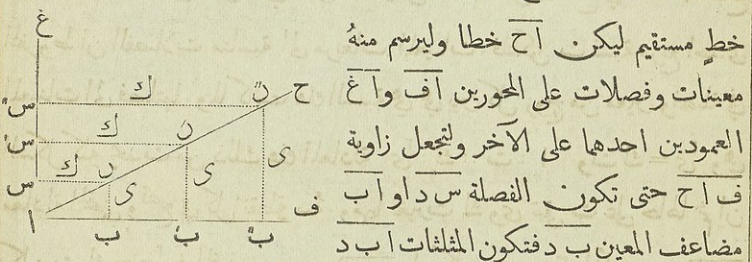 خطٍ مستقيم ليكن اح خطا وليرسم منهُ
معينات وفصلات على المحورين اف واغ
العمودين احدهما على الآخر ولتجعل زاوية
ف اح حتى تكون الفصلة س د او اب
مضاعف المعين ب د فتكون المثلثات اب د
غ
ح
ن
ك
س
ن
ك
س
ن
ك
س
ى
ى
ى
ف
ا
ب
ب
ب